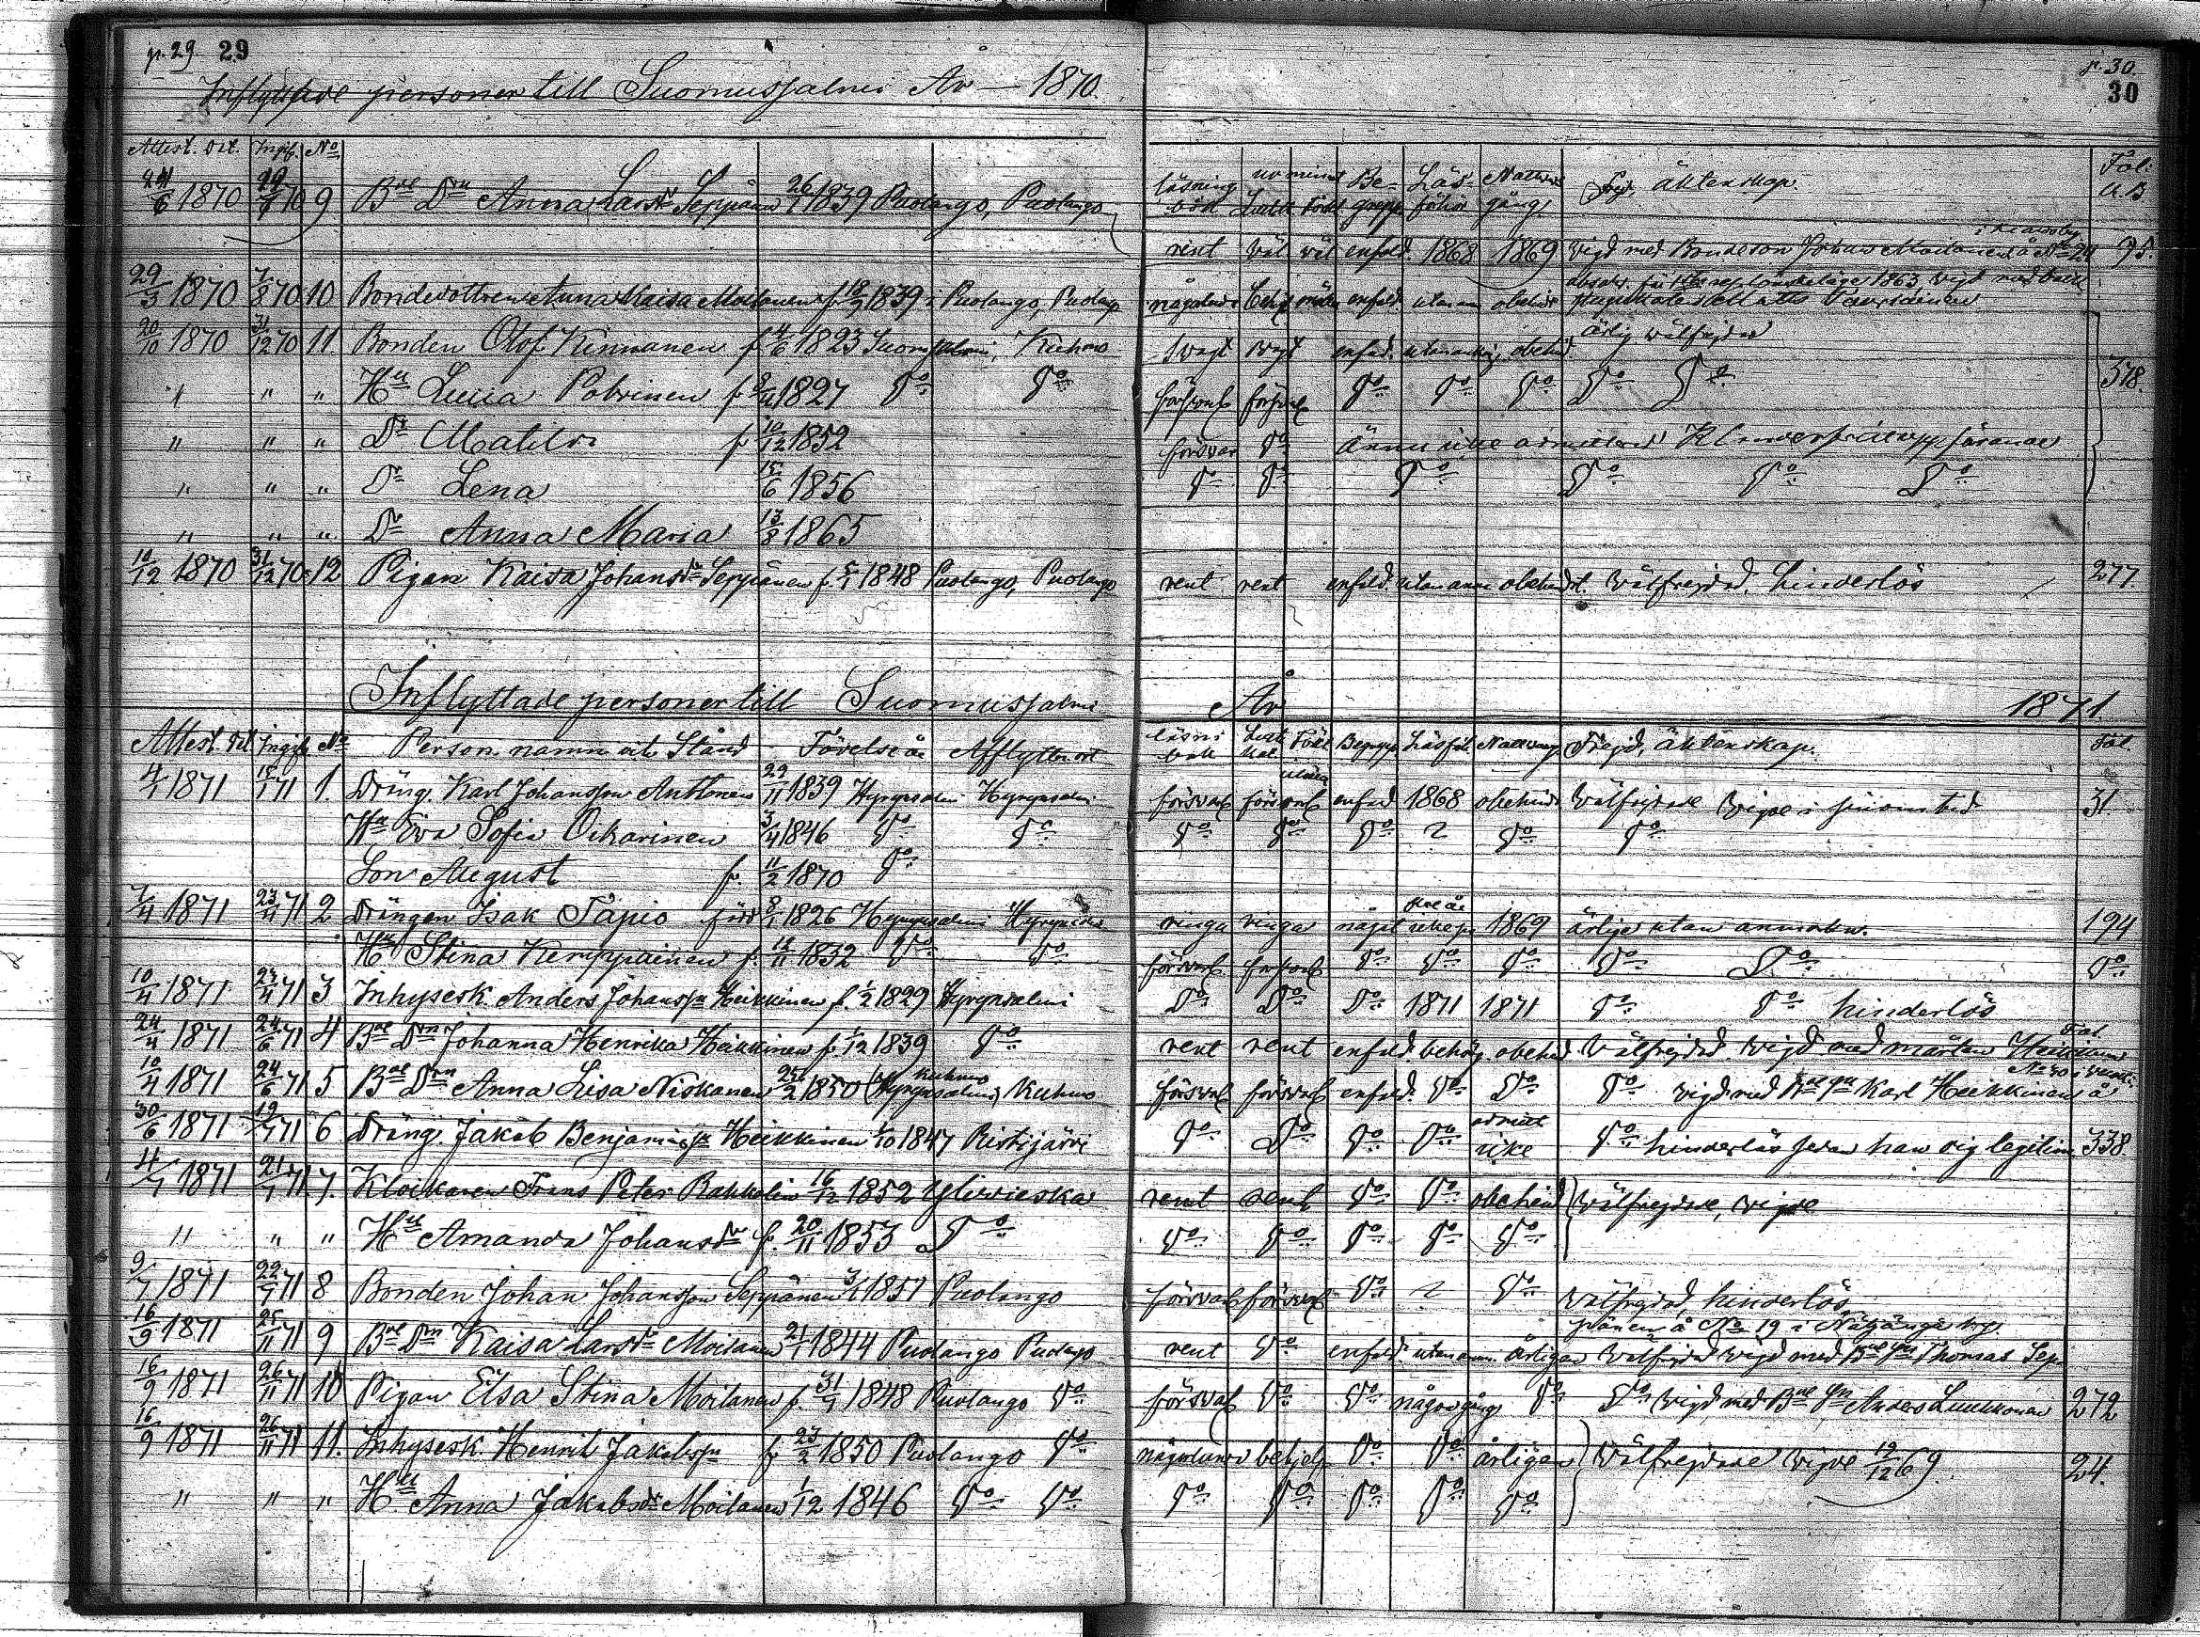 p. 29 29
Inflyttade personer till Suomussalmi År 1870.
p. 30.
30
Attest. dat. Ingif. No
läsning Be- Läs- Nattv. Frejd, äktenskap. Fol:
bok Luth gång N.B
24/6 1870 70 9 Bde Dtr Anna Larsdr Seppänen 26/1 1839 Puolango, Puolango
rent väl väl enfald. 1868 1869 vigd med Bondeson Johan Moilanen å No 24 95.
29/3 1870 7/8 70 10 Bondedottren Anna Kaisa Moilanen f. 18/9 1839 i Puolango, Puolango någorlunda enfald. utan anm obehind
20/10 1870 31/12 70 11. Bonden Olof Kinnunen f. 4/6 1823 Suomussalmi, Kuhmo svagt svagt enfald. obehind. ärlig välfrejdad
" " " Hu Lucia Polvinen f. 1827 Do Do försvarl försvarl Do Do Do Do Do 378.
" " " Dr Matilda f. 10/12 1852 försvar Do ännu icke admitterad
" " " Dr Lena 15/6 1856 Do Do Do Do Do Do
" " " Dr Anna Maria 13/3 1865
10/12 1870 31/12 70 12 Pigan Kaisa Johansdr Seppänen f. 5/1 1848 Puolango, Puolango rent rent enfald. utan anm obehindrt. Välfrejdad. hinderlös 277.
Inflyttade personer till Suomussalmi År 1871.
Attest. dat Ingif. No Person. namn och Stånd Födelseår Afflyttn.ort läsni bok Luth Kat Begrepp Läsför. Nattvards Frejd, äktenskap. Fol.
4/1 1871 15/1 71 1. Dräng. Karl Johansson Anttonen 29/11 1839 Hyrynsalmi Hyrynsalmi försvarl försvarl enfald 1868 obehind Välfrejdade Vigde i sinom tid 31.
Hu Eva Sofia Oikarinen 3/4 1846 Do Do Do Do Do 2 Do Do
Son August f. 11/2 1870 Do
7/4 1871 23/4 71 2 Drängen Isak Tapio född 8/1 1826 Hyrynsalmi Hyrynsalmi ringa ringa något 1869 ärliga utan anmärkn. 194
Hu Stina Kemppainen f. 12/11 1832 Do Do försvarl försvarl Do Do Do Do Do Do
10/4 1871 23/4 71 3 Inhysesk. Anders Johansson Heikkinen f. 1/2 1829 Hyrynsalmi Do Do Do 1871 1871 Do Do hinderlös
24/4 1871 24/6 71 4 Bde Dtn Johanna Henrika Heikkinen f. 1/12 1839 Do rent rent enfald. behörig. obehind. Välfrejdad. Vigd med Mårten Heikkinen
10/4 1871 24/6 71 5 Bde Dtn Anna Lisa Niskanen 25/2 1850 (Kuhmo Hyrynsalmi) Kuhmo försvarl försvarl enfald. Do Do Do vigd med Karl Heikkinen å
30/6 1871 19/7 71 6 Dräng. Jakob Benjaminsson Heikkinen 1/10 1847 Ristijärvi Do Do Do Do admitt icke Do hinderlös sedan han sig legitim. 338.
4/7 1871 21/7 71 7. Klockaren Frans Peter Rahkolin 16/12 1852 Ylivieska rent rent Do Do obehind Välfrejdade, vigde
" " " Hu Amanda Johansdr f. 20/11 1853 Do Do Do Do Do Do
9/7 1871 22/7 71 8 Bonden Johan Johansson Seppänen 3/1 1851 Puolango försvarl försvarl Do 2 Do Välfrejdad, hinderlös
16/9 1871 25/11 71 9 Bde Dtn Kaisa Larsdr Moilanen 21/1 1844 Puolango Puolango rent Do enfald. utan anm. årligen Välfrejdad vigd med Thomas Sep-
pänen å No 19 i Näljänge by.
16/9 1871 26/11 71 10 Pigan Elsa Stina Moilanen f. 31/1 1848 Puolango Do försvarl Do Do någon gång Do Do Vigd med Anders Luukkonen 272
16/9 1871 26/11 71 11. Inhysesk. Henrik Jakobsson f. 23/2 1850 Puolango Do någorlunda behjelp Do Do årligen Välfrejdade Vigde 19/12 69. 24.
" " " Hu Anna Jakobsdr Moilanen 1/12 1846 Do Do Do Do Do Do Do